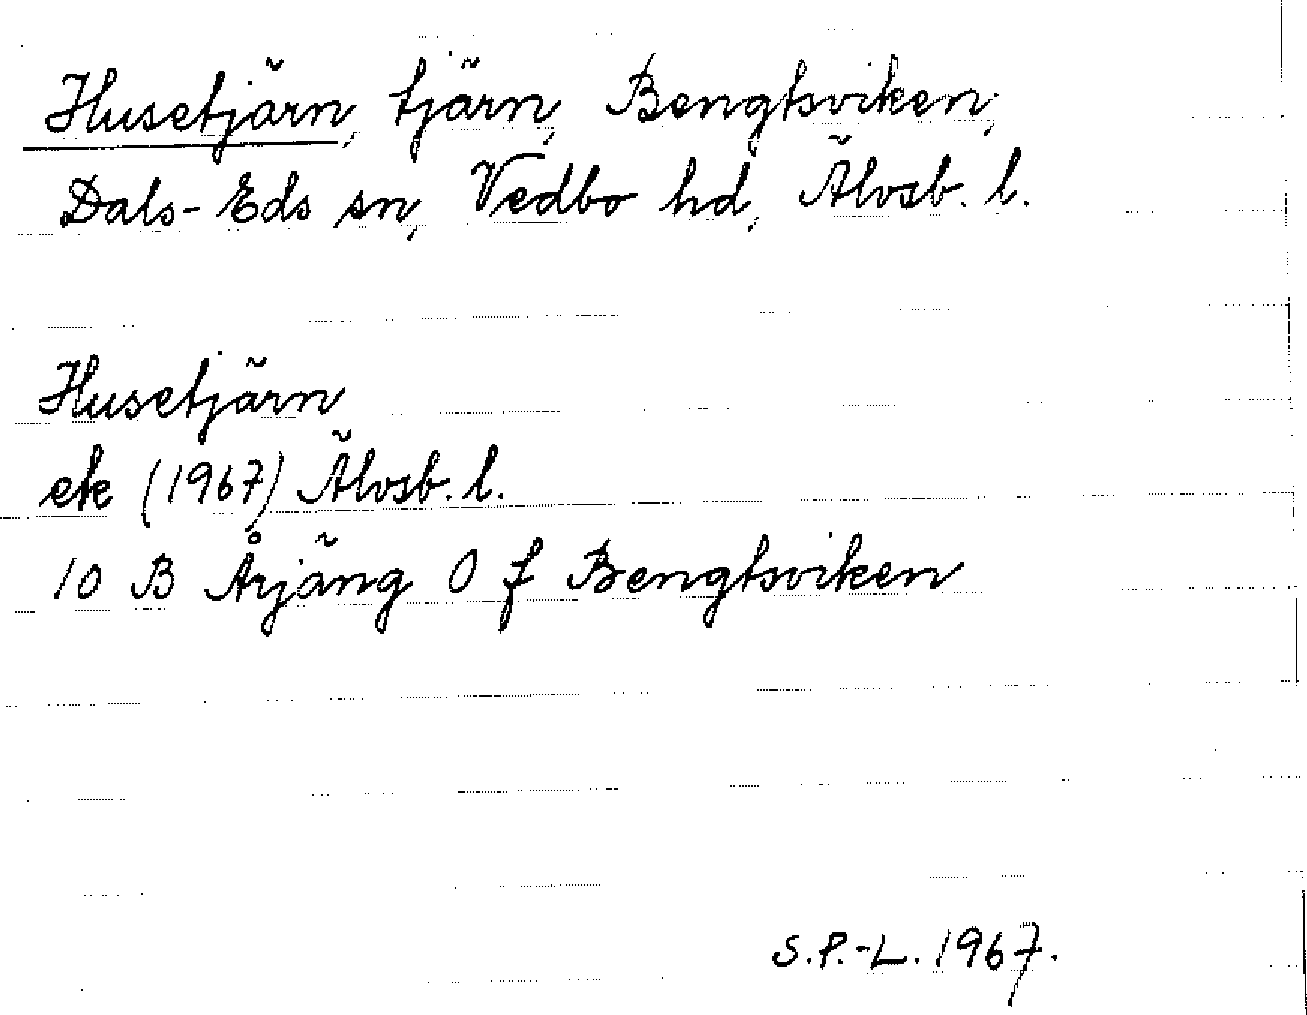 Husetjärn, tjärn, Bengtsviken,
Dals-Eds sn, Vedbo hd, Älvsb. l.
Husetjärn
ek (1967) Älvsb. l.
10 B Årjäng O f Bengtsviken
S.P.-L. 1967.